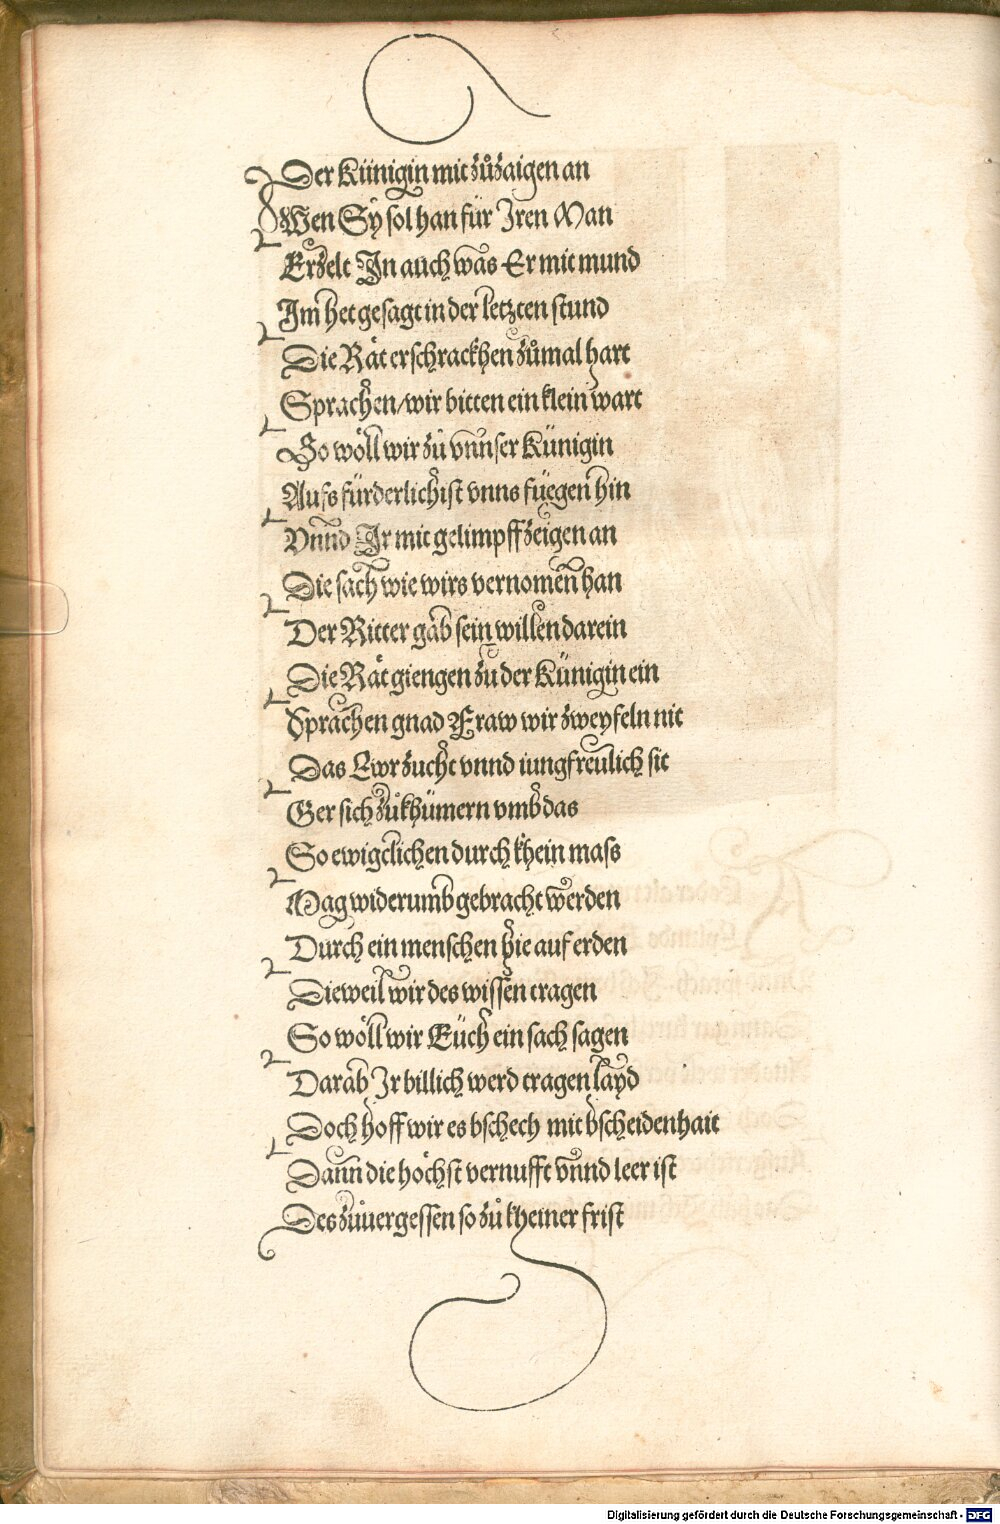 Der Künigin mit zůzaigen an
Wen Sy sol han für Jren Man
Erzelt Jn auch was Er mit mund
Jm het gesagt in der letzten stund
Die Rät erschrackhen zůmal hart
Sprachen/wir bitten ein klein wart
So wöll wir zů vnnser Künigin
Aufs fürderlichist vnns füegen hin
Vnnd Jr mit gelimpff zeigen an
Die sach wie wirs vernomen han
Der Ritter gab sein willen darein
Die Rät giengen zu der Künigin ein
Sprachen gnad Fraw wir zweyfeln nit
Das Ewr zucht vnnd iungfreulich sit
Ger sich zůkhümern vmb das
So ewigclichen durch khein mass
Mag widerumb gebracht werden
Durch ein menschen hie auf erden
Dieweil wir des wissen tragen
So wöll wir Eüch ein sach sagen
Darab Jr billich werd tragen layd
Doch hoff wir es bschech mit bscheidenhait
Dann die höchst vernufft vnnd leer ist
Des zůuergessen so zů kheiner frist
Digitalisierung gefördert durch die Deutsche Forschungsgemeinschaft - DFG